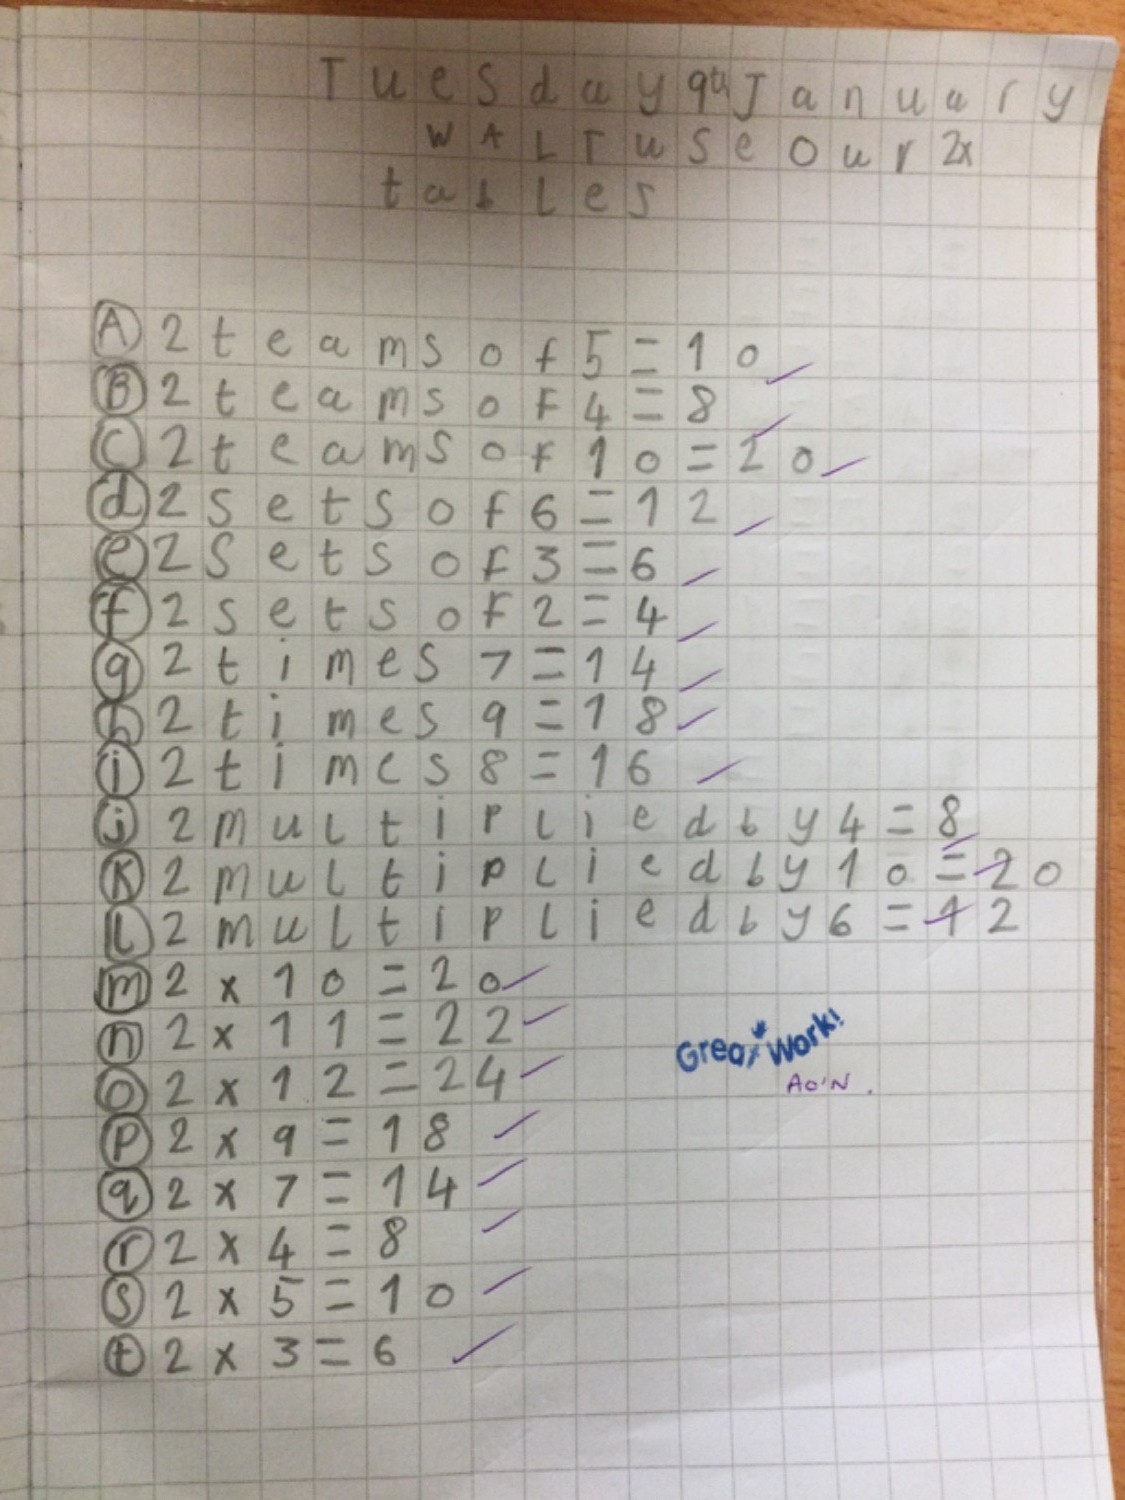 Tuesday 9th January
WALT use our 2x
tables
A 2 teams of 5 = 10
B 2 teams of 4 = 8
C 2 teams of 10 = 20
d 2 sets of 6 = 12
e 2 sets of 3 = 6
f 2 sets of 2 = 4
g 2 times 7 = 14
h 2 times 9 = 18
i 2 times 8 = 16
j 2 multiplied by 4 = 8
K 2 multiplied by 10 = 20
l 2 multiplied by 6 = 12
m 2 x 10 = 20
n 2 x 11 = 22
o 2 x 12 = 24
p 2 x 9 = 18
q 2 x 7 = 14
r 2 x 4 = 8
s 2 x 5 = 10
t 2 x 3 = 6
Great Work!
AO'N.